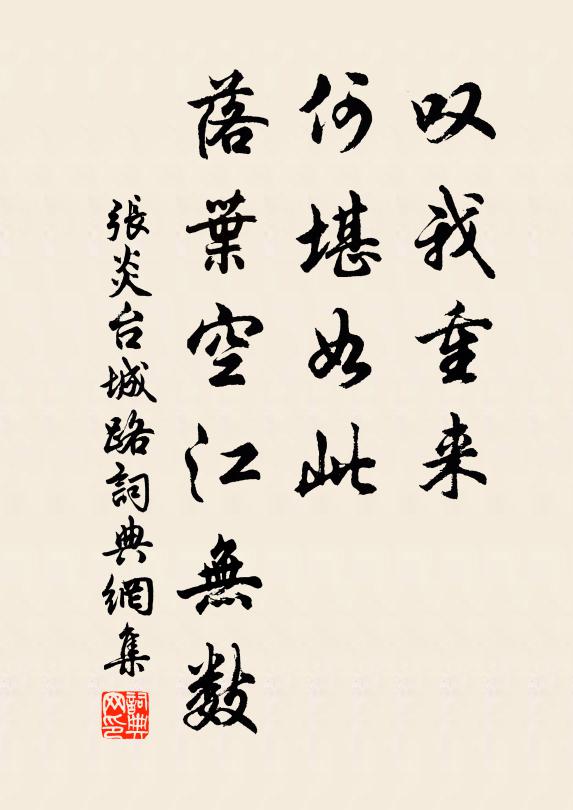 叹我重来
何堪如此
落葉空江無数
張炎台城路詞典網集
詞典网印